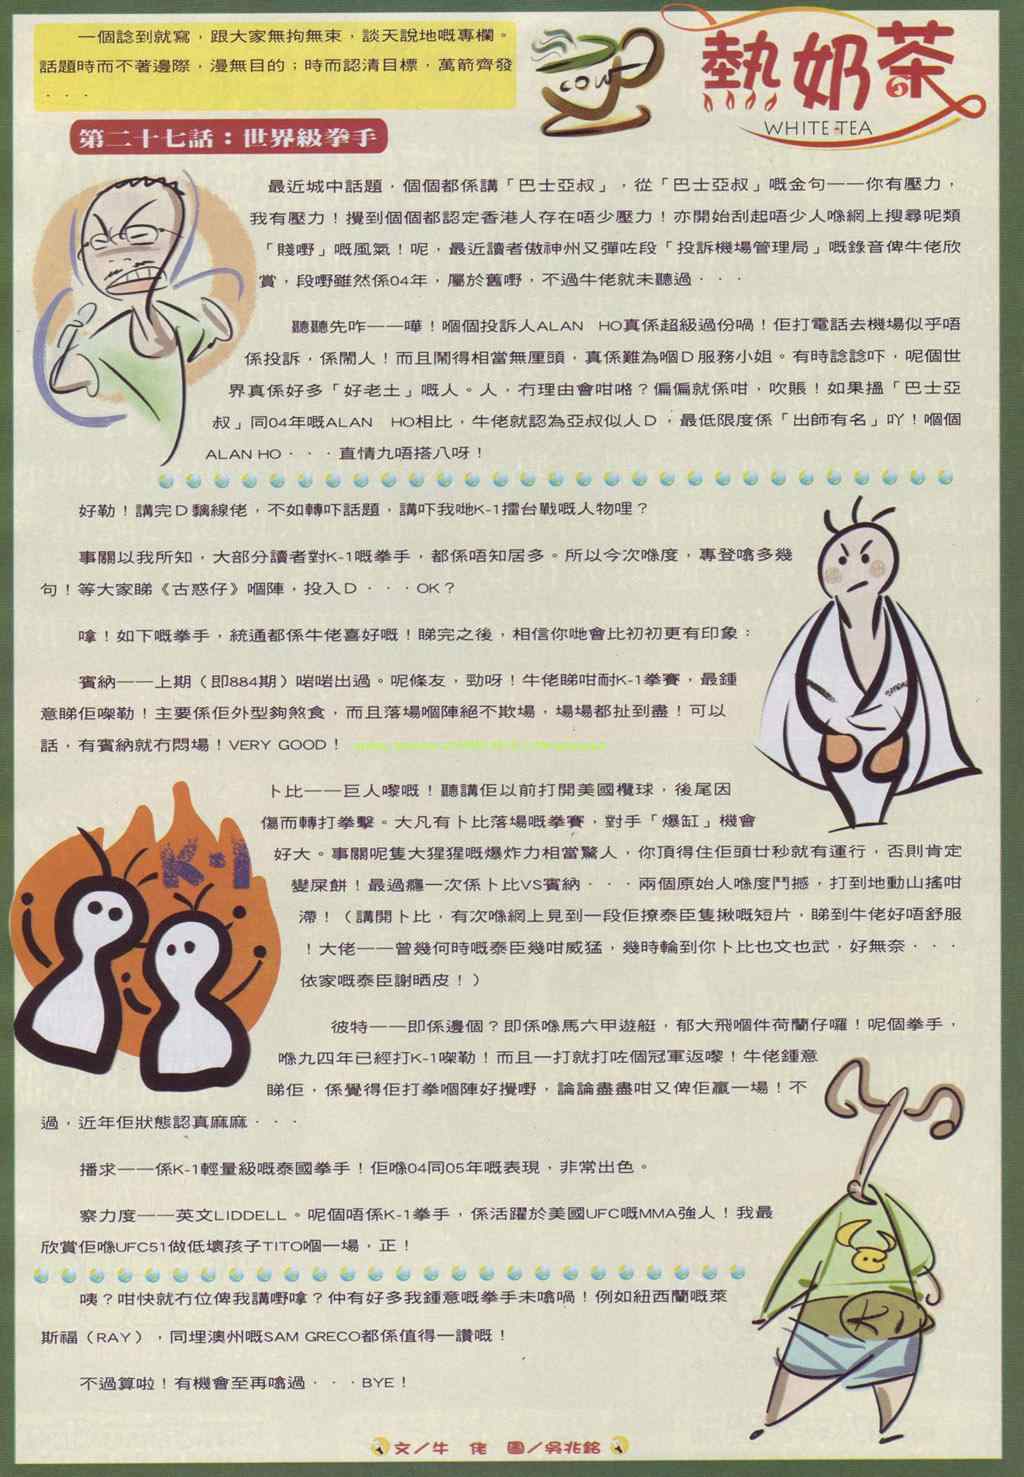 一個諗到就寫，跟大家無拘無束，談天說地嘅專欄。
話題時而不著邊際，漫無目的；時而認清目標，萬箭齊發
．．．
COW
熱奶茶
WHITE TEA
第二十七話：世界級拳手
最近城中話題，個個都係講「巴士亞叔」，從「巴士亞叔」嘅金句——你有壓力，
我有壓力！攪到個個都認定香港人存在唔少壓力！亦開始刮起唔少人喺網上搜尋呢類
「賤嘢」嘅風氣！呢，最近讀者傲神州又彈咗段「投訴機場管理局」嘅錄音俾牛佬欣
賞，段嘢雖然係04年，屬於舊嘢，不過牛佬就未聽過．．．
聽聽先咋——嘩！嗰個投訴人ALAN HO真係超級過份喎！佢打電話去機場似乎唔
係投訴，係鬧人！而且鬧得相當無厘頭，真係難為嗰Ｄ服務小姐。有時諗諗吓，呢個世
界真係好多「好老土」嘅人。人，冇理由會咁嘅？偏偏就係咁，吹賬！如果搵「巴士亞
叔」同04年嘅ALAN HO相比，牛佬就認為亞叔似人Ｄ，最低限度係「出師有名」吖！嗰個
ALAN HO．．．直情九唔搭八呀！
好勒！講完Ｄ黐線佬，不如轉吓話題，講吓我哋K-1擂台戰嘅人物哩？
事關以我所知，大部分讀者對K-1嘅拳手，都係唔知居多。所以今次喺度，專登噏多幾
句！等大家睇《古惑仔》嗰陣，投入Ｄ．．．OK？
嗱！如下嘅拳手，統通都係牛佬喜好嘅！睇完之後，相信你哋會比初初更有印象：
賓納——上期（即884期）啱啱出過。呢條友，勁呀！牛佬睇咁耐K-1拳賽，最鍾
意睇佢㗎勒！主要係佢外型夠煞食，而且落場嗰陣絕不欺場，場場都扯到盡！可以
話，有賓納就冇悶場！VERY GOOD！
卜比——巨人嚟嘅！聽講佢以前打開美國欖球，後尾因
傷而轉打拳擊。大凡有卜比落場嘅拳賽，對手「爆缸」機會
好大。事關呢隻大猩猩嘅爆炸力相當驚人，你頂得住佢頭廿秒就有運行，否則肯定
變屎餅！最過癮一次係卜比VS賓納．．．兩個原始人喺度鬥撼，打到地動山搖咁
滯！（講開卜比，有次喺網上見到一段佢撩泰臣隻揪嘅短片，睇到牛佬好唔舒服
！大佬——曾幾何時嘅泰臣幾咁威猛，幾時輪到你卜比也文也武，好無奈．．．
依家嘅泰臣謝晒皮！）
K-1
彼特——即係邊個？即係喺馬六甲遊艇，郁大飛嗰件荷蘭仔囉！呢個拳手，
喺九四年已經打K-1㗎勒！而且一打就打咗個冠軍返嚟！牛佬鍾意
睇佢，係覺得佢打拳嗰陣好攪嘢，論論盡盡咁又俾佢贏一場！不
過，近年佢狀態認真麻麻．．．
播求——係K-1輕量級嘅泰國拳手！佢喺04同05年嘅表現，非常出色。
察力度——英文LIDDELL。呢個唔係K-1拳手，係活躍於美國UFC嘅MMA強人！我最
欣賞佢喺UFC51做低壞孩子TITO嗰一場，正！
咦？咁快就冇位俾我講嘢嗱？仲有好多我鍾意嘅拳手未噏喎！例如紐西蘭嘅萊
斯福（RAY），同埋澳州嘅SAM GRECO都係值得一讚嘅！
不過算啦！有機會至再噏過．．．BYE！
文／牛 佬 圖／吳兆銘